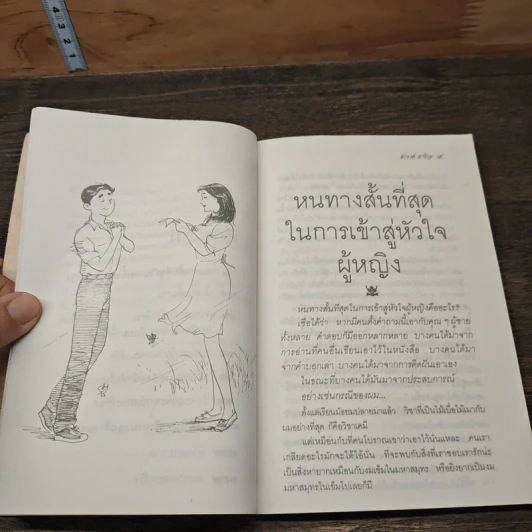 หนทางสั้นที่สุด
ในการเข้าสู่หัวใจ
ผู้หญิง
หนทางสั้นที่สุดในการเข้าสู่หัวใจผู้หญิงคืออะไร?
เชื่อได้ว่า หากมีคนตั้งคำถามนี้เอากับคุณ ๆ ผู้ชาย
ทั้งหลาย คำตอบก็มีออกหลากหลาย บางคนได้มาจาก
การอ่านที่คนอื่นเขียนเอาไว้ในหนังสือ บางคนได้มา
จากคำบอกเล่า บางคนได้มาจากการคิดฝันเอาเอง
ในขณะที่บางคนได้มันมาจากประสบการณ์
อย่างเช่นกรณีของผม...
ตั้งแต่เรียนมัธยมปลายมาแล้ว วิชาที่เป็นไม้เบื่อไม้เมากับ
ผมอย่างที่สุด ก็คือวิชาเคมี
แต่เหมือนกับที่คนโบราณเขาว่าเอาไว้นั่นแหละ คนเรา
เกลียดอะไรมักจะได้ไอ้นั่น ที่จะพบกับสิ่งที่เราชอบเรารักน่ะ
เป็นสิ่งหายากเหมือนกับงมเข็มในมหาสมุทร หรือยิ่งยากเป็นงม
มหาสมุทรในเข็มไปเลยก็มี
4 3 2 1